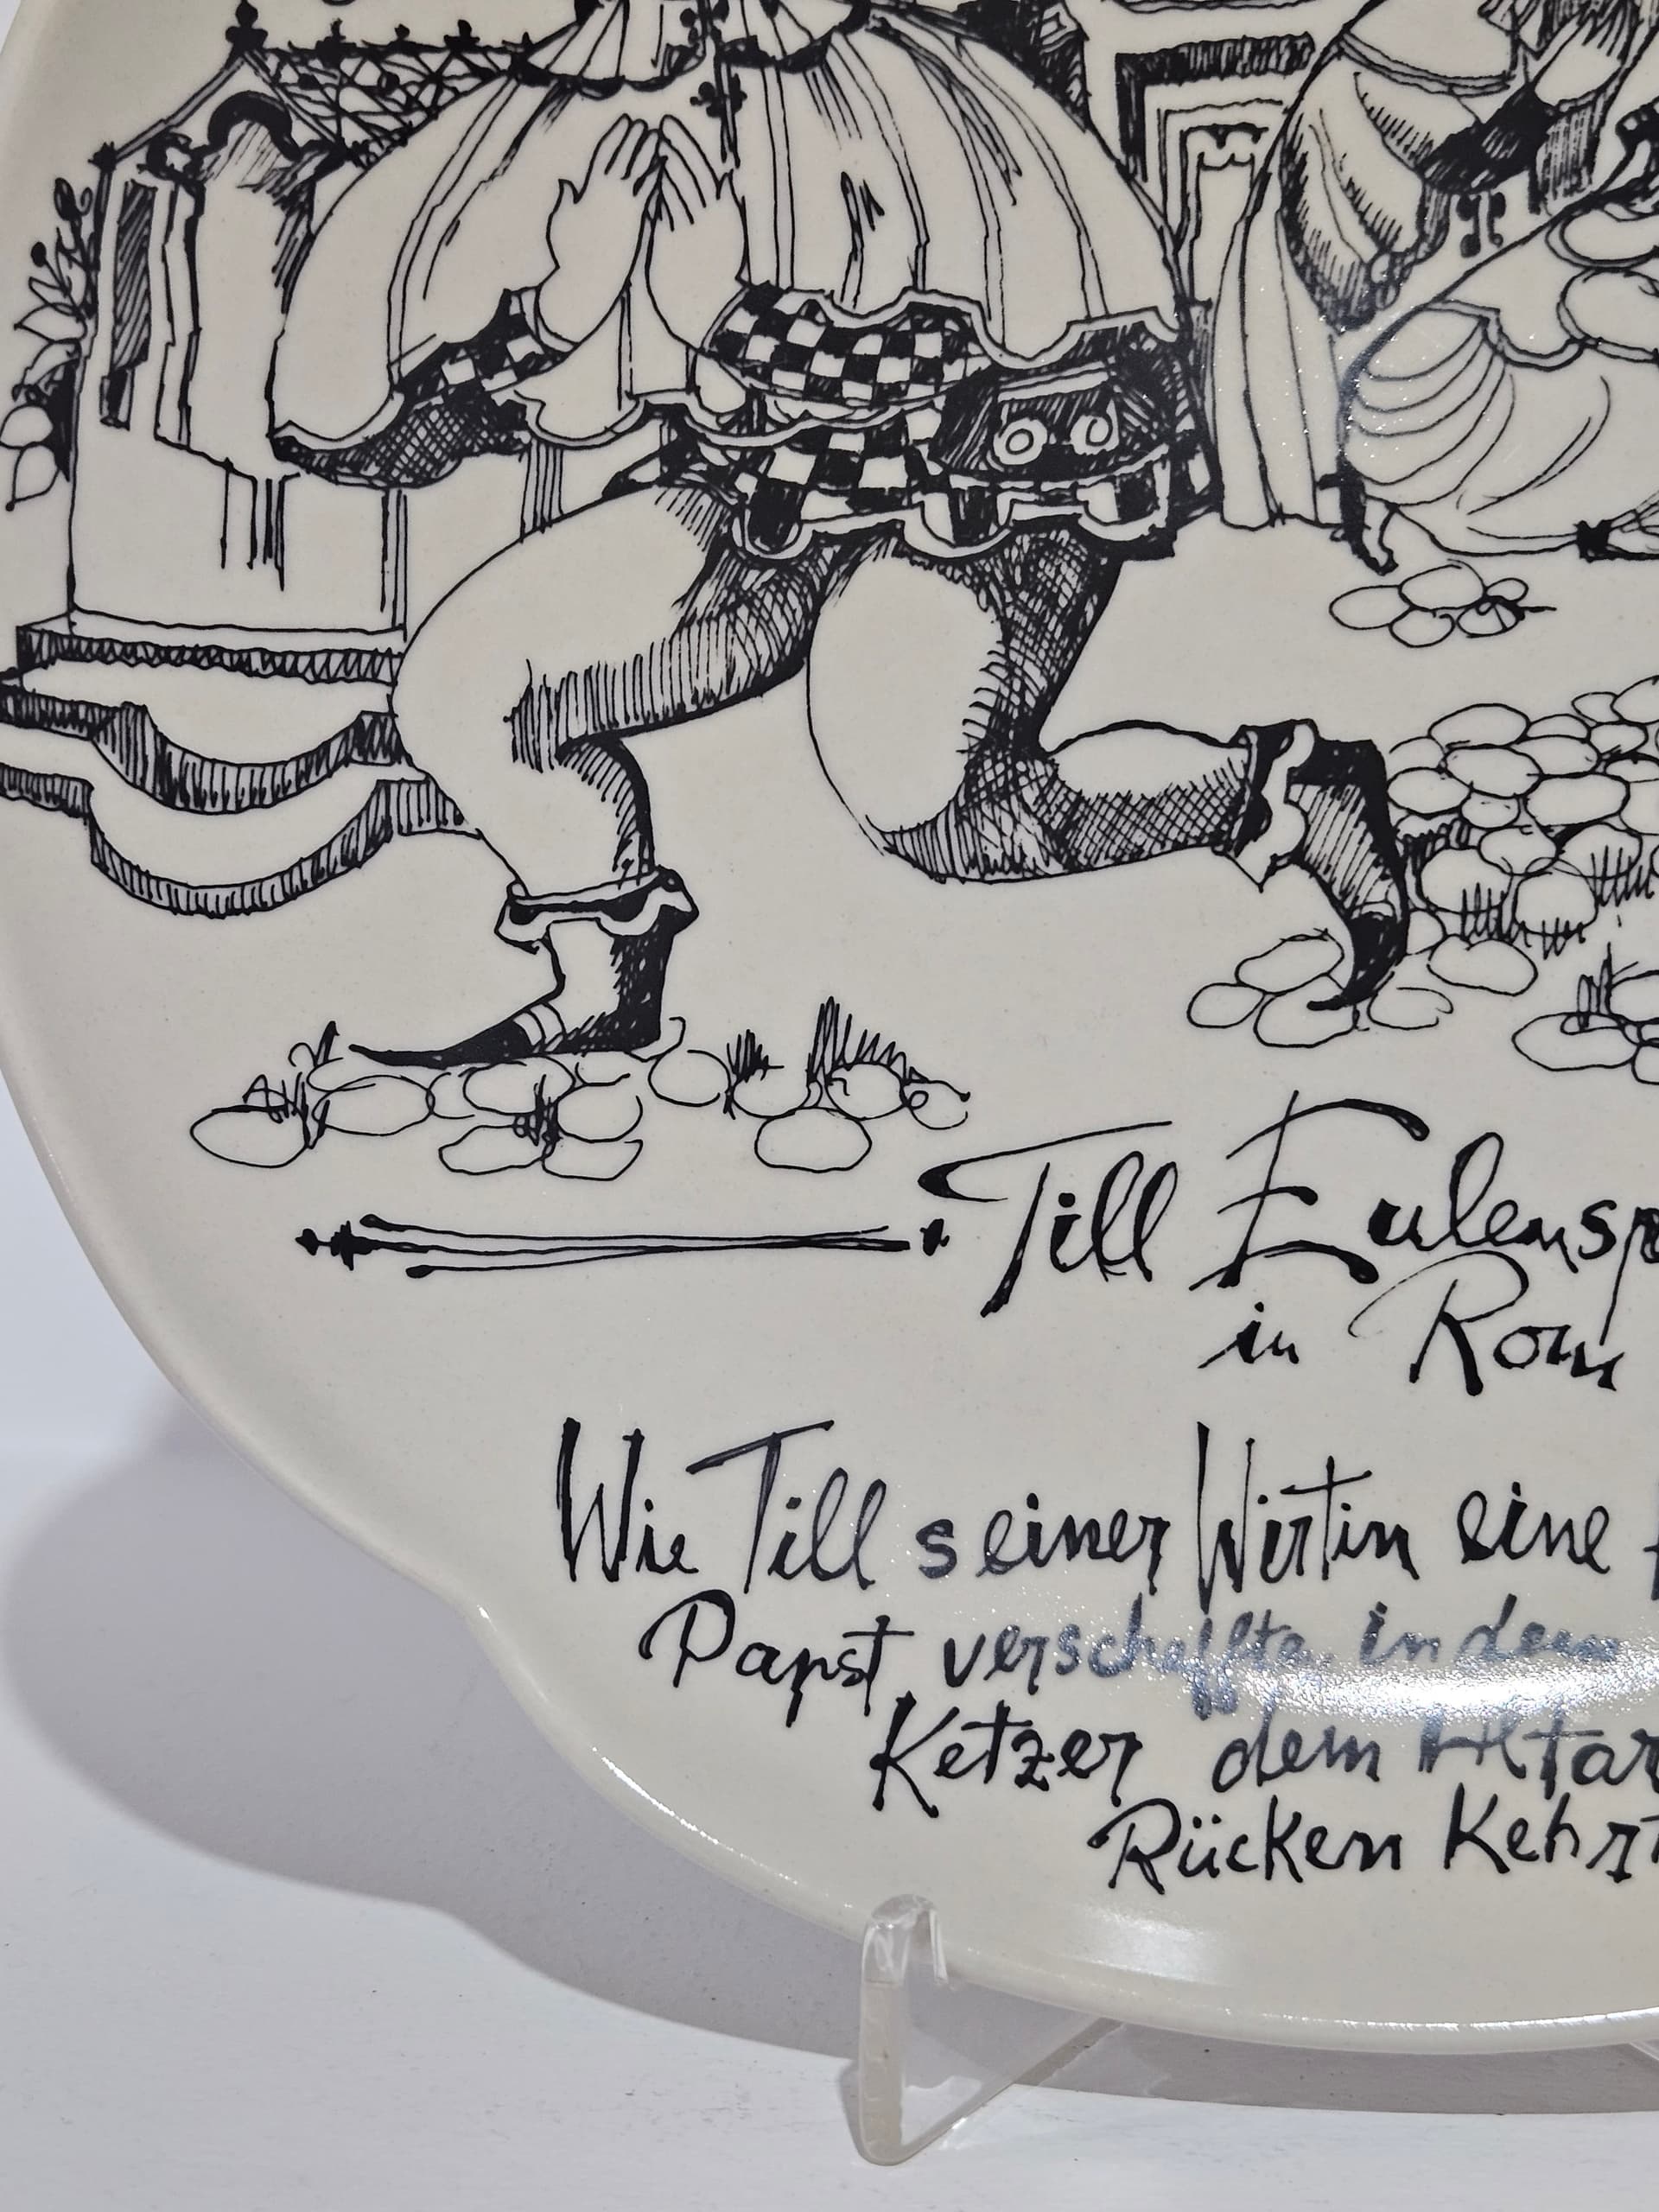 Till Eulensp
in Rom
Wie Till seiner Wirtin eine
Papst verschaffte, indem
Ketzer dem Altar
Rücken Kehrt